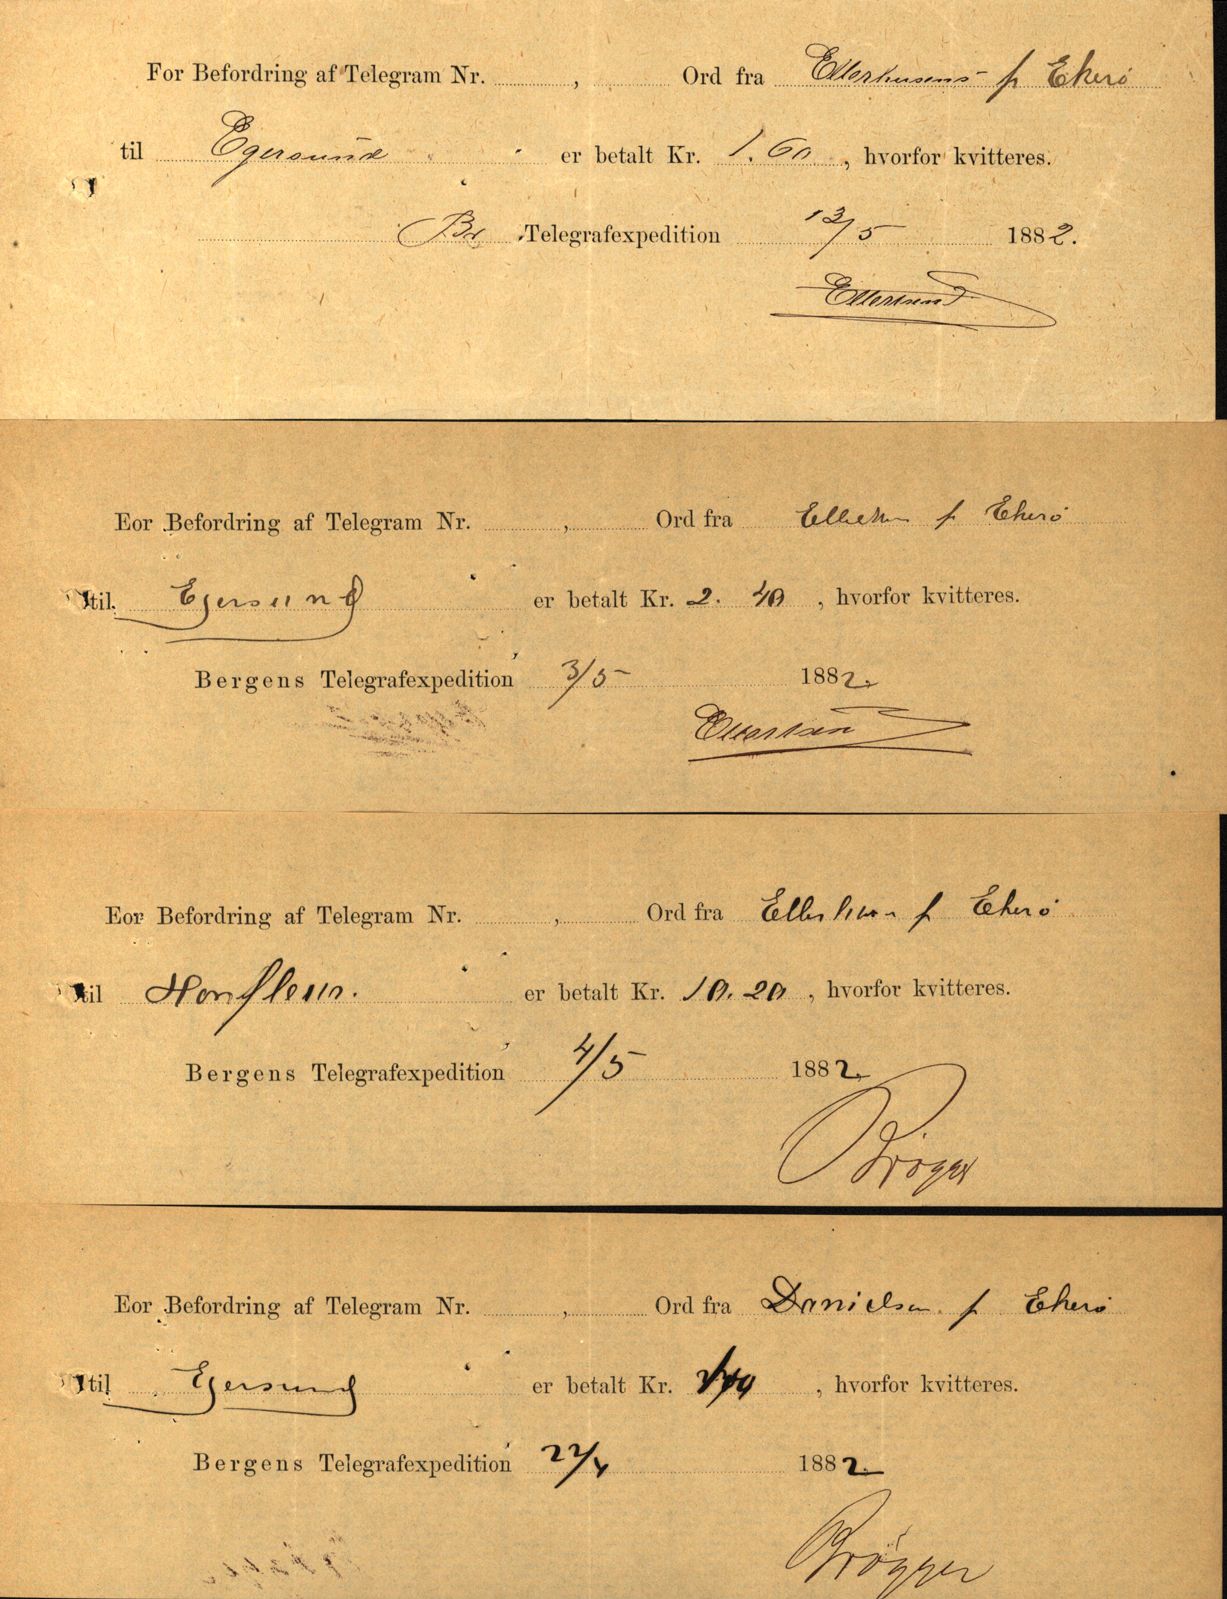 For Befordring af Telegram Nr. , Ord fra Ellerhusens p Ekerö
til Egersund er betalt Kr. 1.60, hvorfor kvitteres.
Be Telegrafexpedition 13/5 1882.
Eor Befordring af Telegram Nr. , Ord fra p Ekerö
til Egersund er betalt Kr. 2. 40, hvorfor kvitteres.
Bergens Telegrafexpedition 3/5 1882.
Eor Befordring af Telegram Nr. , Ord fra p Ekerö
til Honfleur. er betalt Kr. 10.20, hvorfor kvitteres.
Bergens Telegrafexpedition 4/5 1882.
Brögger
Eor Befordring af Telegram Nr. , Ord fra Danielsen p Ekerö
til Egersund er betalt Kr. , hvorfor kvitteres.
Bergens Telegrafexpedition 22/4 1882.
Brögger